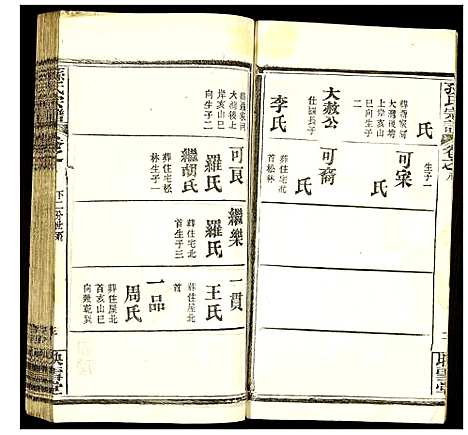 孫氏宗譜
氏
生子一
葬聶家河
大灣後塆
上岸亥山
巳向生子
二
可宷
氏
大赦公
仕國長子
可裔
氏
葬住宅北
首松林
李氏
葬聶家河
大灣後上
岸亥山巳
向生子二
可良
羅氏
繼胡氏
葬住宅松
林生子一
繼樂
羅氏
葬住宅北
首生子三
一貫
王氏
葬住屋北
首
一品
周氏
葬住屋北
首亥山巳
向兼乾巽
孫氏宗譜
映雪堂
映雪堂